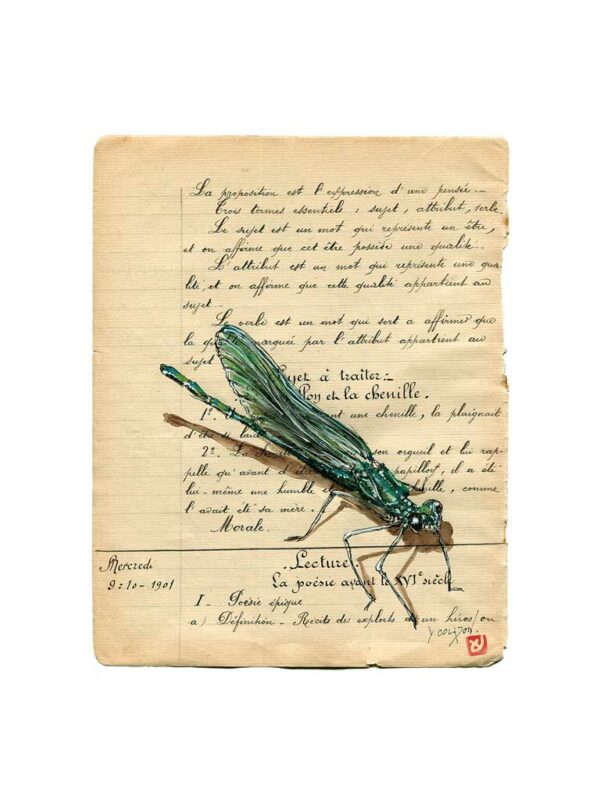 La proposition est l'expression d'une pensée._
Trois termes essentiels : sujet, attribut, verbe
Le sujet est un mot qui représente un être,
et on affirme que cet être possède une qualité._
L'attribut est un mot qui représente une qua
lité, et on affirme que cette qualité appartient au
sujet._
Le verbe est un mot qui sert a affirmer que
la marquée par l'attribut appartient au
sujet
Sujet à traiter:_
et la chenille._
1º. ant une chenille, la plaignait
d'être laid
2º. La son orgueil et lui rap-
pelle qu'avant d'êt papillon, il a été
lui-même une humble comme
l'avait été sa mère._
Morale._
Mercredi
9-10-1901
. Lecture.
La poésie avant le XVIe siècle
I_ Poésie épique
a) Définition_ Récits des exploits d'un héros/ou
Y. COLXION.